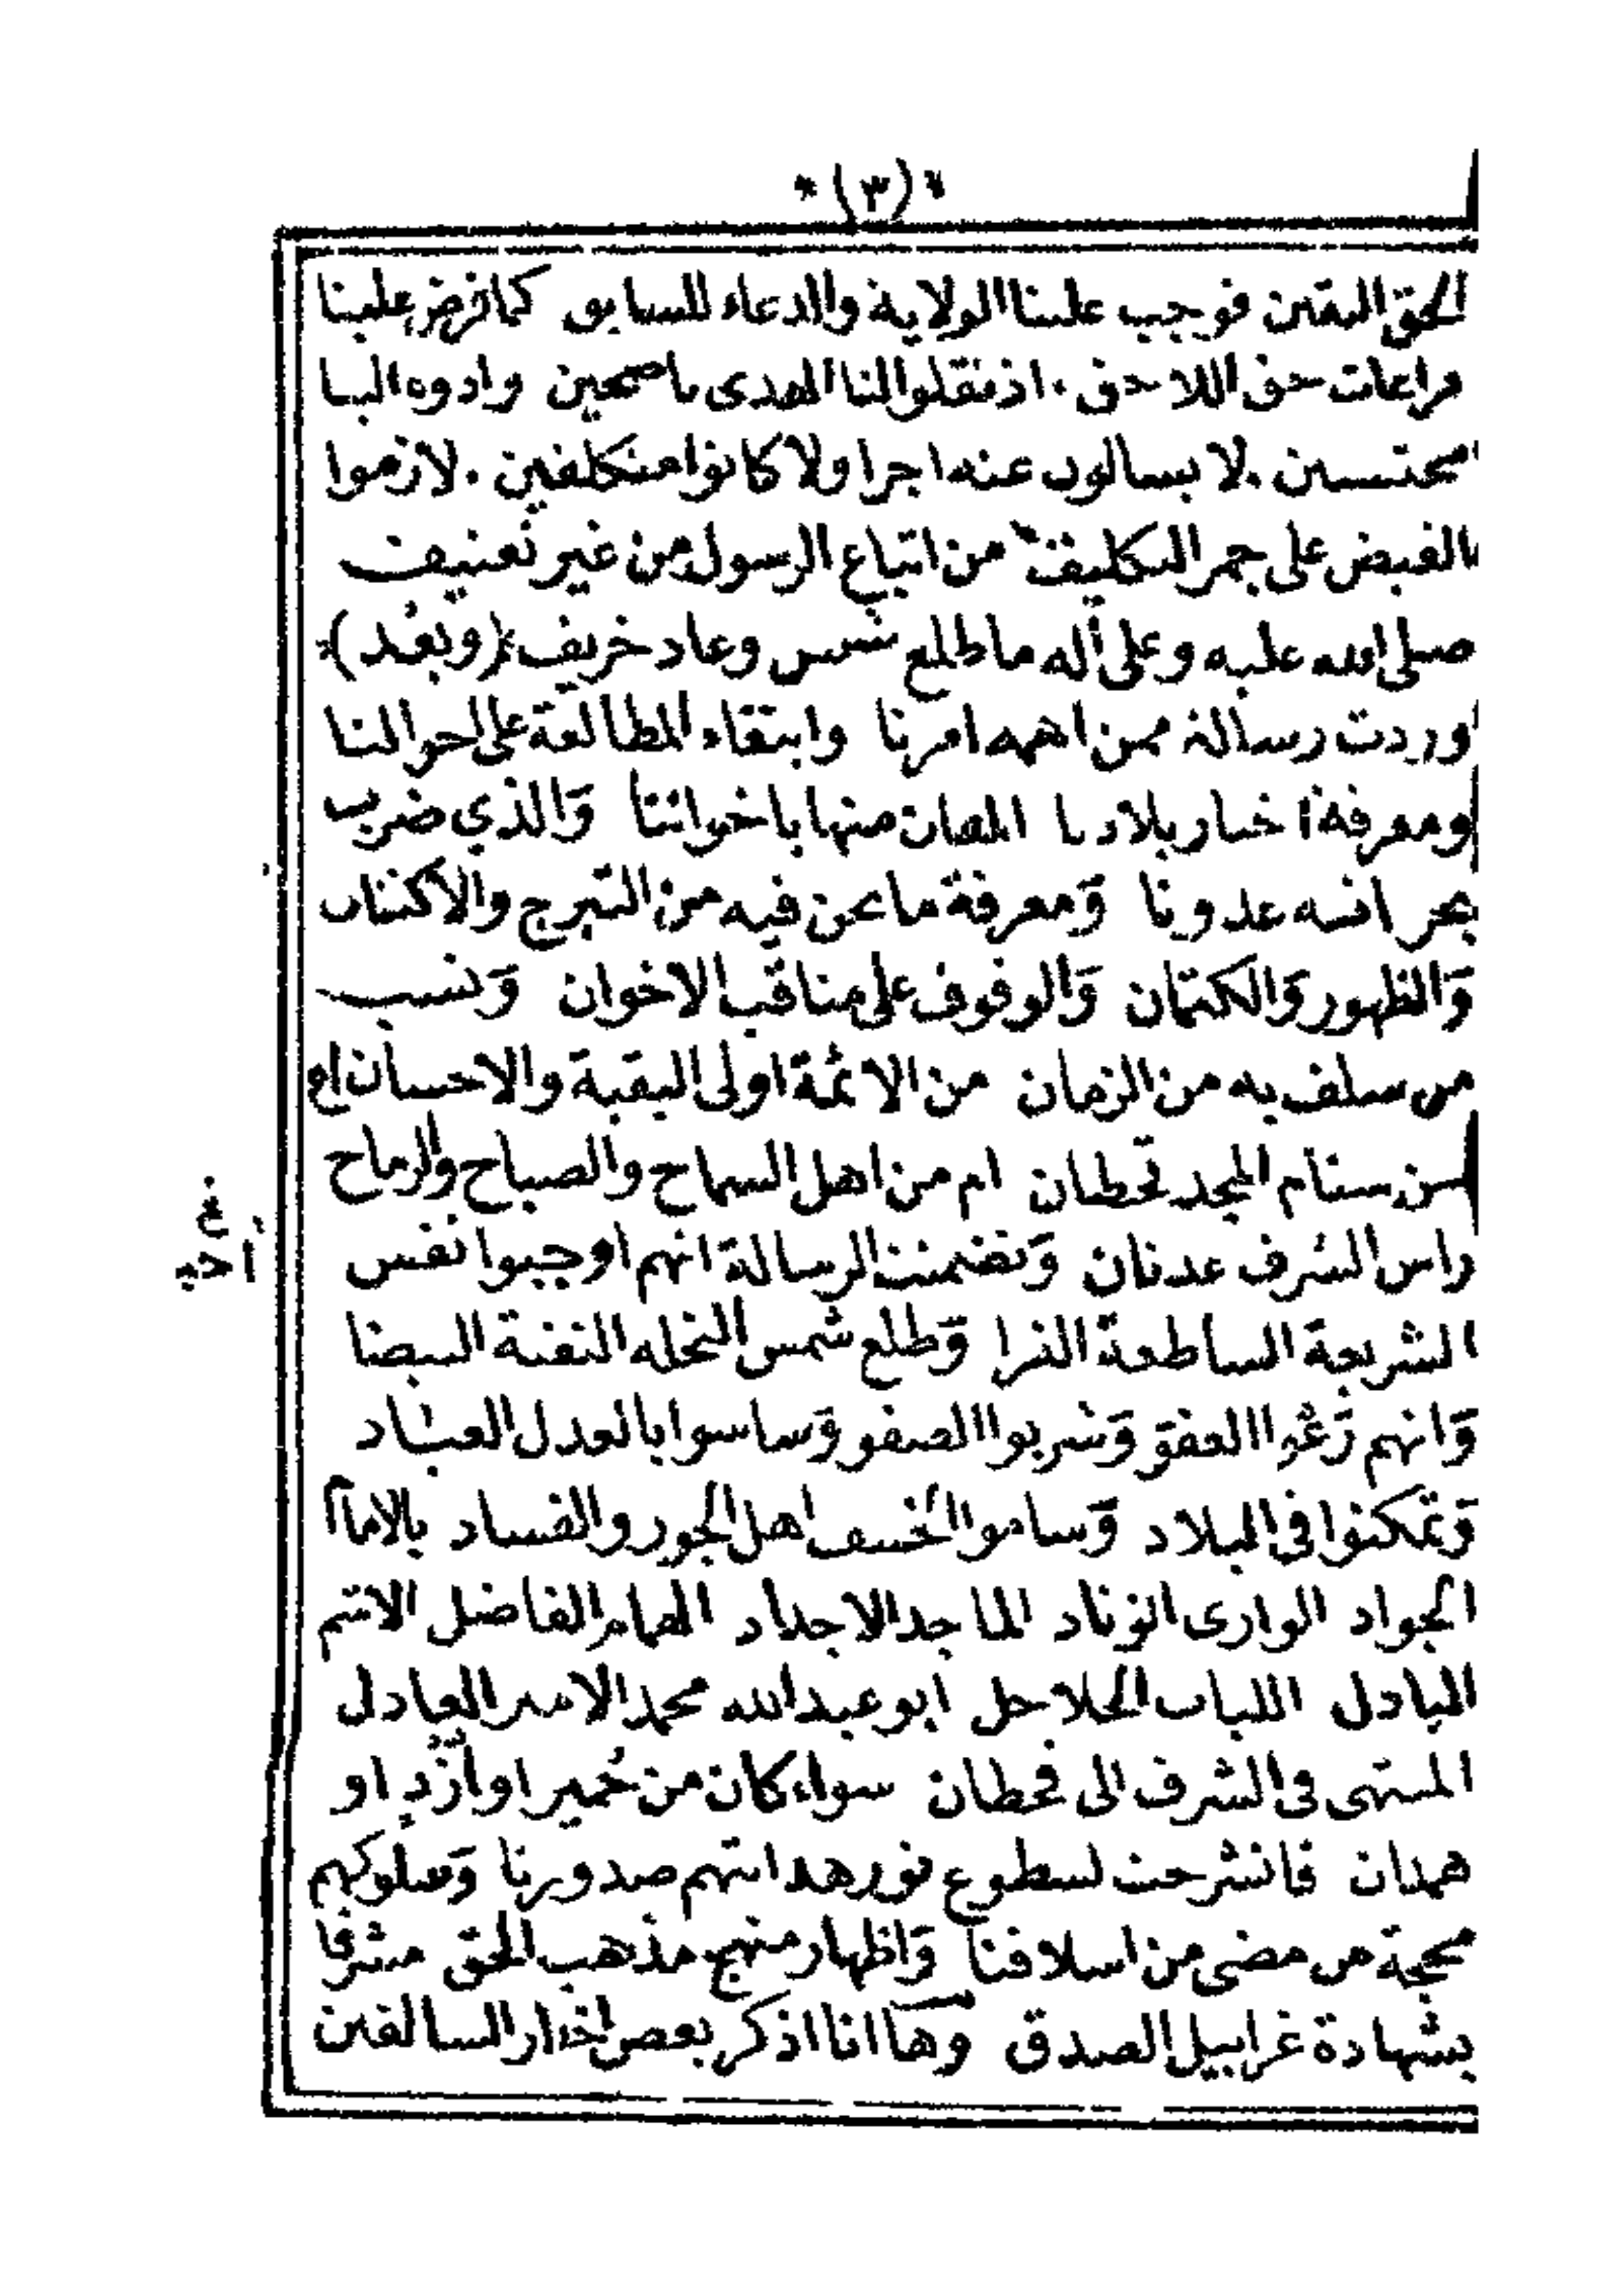 *(٣)*
الحق اليقين فوجب علينا الولاية والدعاء للسابق كما فرض علينا
مراعات حق اللاحق . اذ نقلوا لنا الهدى ناصحين وادوه الينا
محتسبين . لا يسالون عنه اجرا ولا كانوا متكلفين . لازموا
القبض على جمر التكليف من اتباع الرسول من غير تعنيف
صلى الله عليه وعلى آله ما طلع شمس وعاد خريف *(وبعد)*
وردت رسالة ممن اهمه امرنا وابتغاء المطالعة على احوالنا
ومعرفة اخبار بلادنا المصان منها باخواننا وَالذي ضرب
عدونا وَمعرفة ما نحن فيه من التبرج والاكتنان
وَالظهور وَالكتمان وَالوقوف على مناقب الاخوان وَنسب
من سلف به من الزمان من الائمة اولى البقية والاحسان اَو
من سنام المجد قحطان ام من اهل السماح والصباح والرماح
راس الشرف عدنان وَتضمنت الرسالة انهم اوجبوا نفس
الشريعة الساطعة الغرا وَطلع شمس النحله النقية البيضا
وَانهم رَعَوا العفو وَشربوا الصفو وَساسوا بالعدل العباد
وَتمكنوا فى البلاد وَساموا الخسف اهل الجور والفساد بالامام
الجواد الوارى الزناد الماجد الاجداد الهمام الفاضل الاشم
الباذل اللباب الحلاحل ابو عبدالله محمد الامير العادل
المنتهى فى الشرف الى قحطان سواء كان من حُمير او ازْدٍ او
همدان فانشرحت لسطوع نور هدايتهم صدورنا وَسلوكهم
محجة من مضى من اسلافنا وَاظهار منهج مذهب الحق مشرقا
بشهادة غرابيل الصدق وها انا اذكر بعض اخبار السالفين